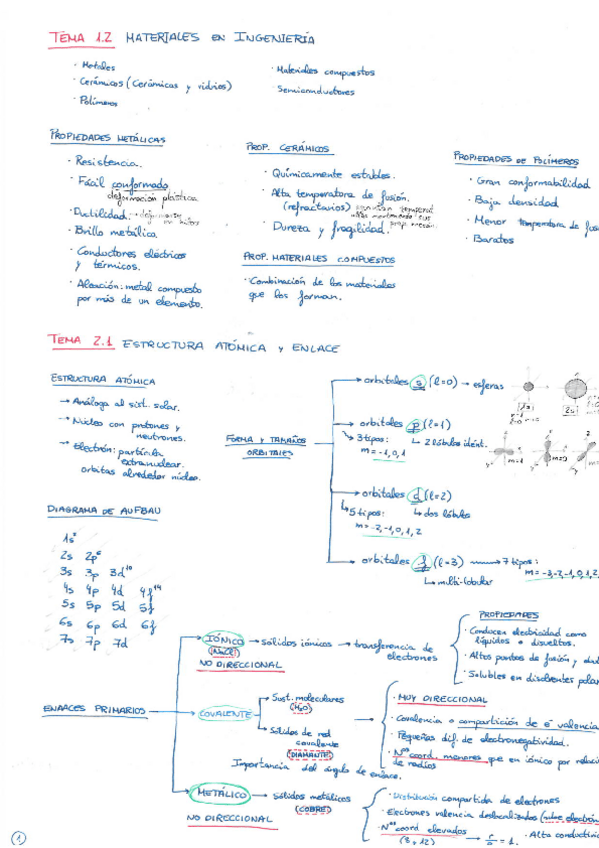 TEMA 1.2 MATERIALES EN INGENIERÍA
· Metales
· Cerámicos (Cerámicas y vidrios)
· Polímeros
· Materiales compuestos
Semiconductores
PROPIEDADES METÁLICAS
· Resistencia.
· Fácil conformado
deformación plástica
· Ductilidad.
· Brillo metálico.
· Conductores eléctricos
y térmicos.
· Aleación: metal compuesto
por más de un elemento.
PROP. CERÁMICOS
· Químicamente estables.
· Alta temperatura de fusión.
(refractarios)
· Dureza y fragilidad.
PROP. MATERIALES COMPUESTOS
· Combinación de los materiales
que los forman.
PROPIEDADES DE POLÍMEROS
· Gran conformabilidad
· Baja densidad
· Menor temperatura de fus
· Baratos
TEMA 2.1 ESTRUCTURA ATÓMICA Y ENLACE
ESTRUCTURA ATÓMICA
→ Análoga al sist. solar.
→ Núcleo con protones y
neutrones.
→ Electrón: partícula
extranuclear.
orbitas alrededor núcleo.
DIAGRAMA DE AUFBAU
1s²
2s 2p⁶
3s 3p 3d¹⁰
4s 4p 4d 4f¹⁴
5s 5p 5d 5f
6s 6p 6d 6f
7s 7p 7d
FORMA Y TAMAÑOS
ORBITALES
orbitales s (l=0) → esferas
orbitales p (l=1)
3 tipos: 2 lóbulos idént.
m = -1, 0, 1
m=-1 m=0
orbitales d (l=2)
5 tipos: dos lóbulos
m = -2, -1, 0, 1, 2
orbitales f (l=3) → 7 tipos:
m = -3, -2, -1, 0, 1, 2
multi-lobular
ENLACES PRIMARIOS
IÓNICO → sólidos iónicos → transferencia de
(NaCl) electrones
NO DIRECCIONAL
PROPIEDADES
· Conducen electricidad como
líquidos o disueltos.
· Altos puntos de fusión y
· Solubles en disolventes polar
COVALENTE
Sust. moleculares
(H₂O)
Sólidos de red
covalente
(DIAMANTE)
Importancia del ángulo de enlace.
· MUY DIRECCIONAL
· Covalencia o compartición de e⁻ valencia
· Pequeñas dif. de electronegatividad.
· Nºˢ coord. menores que en iónico por relaci
de radios
METÁLICO → Sólidos metálicos
(COBRE)
NO DIRECCIONAL
· Distribución compartida de electrones
· Electrones valencia deslocalizados (nube electrón
· Nºˢ coord elevados → r/a = 1. · Alta conductivi
(8, 12)
1